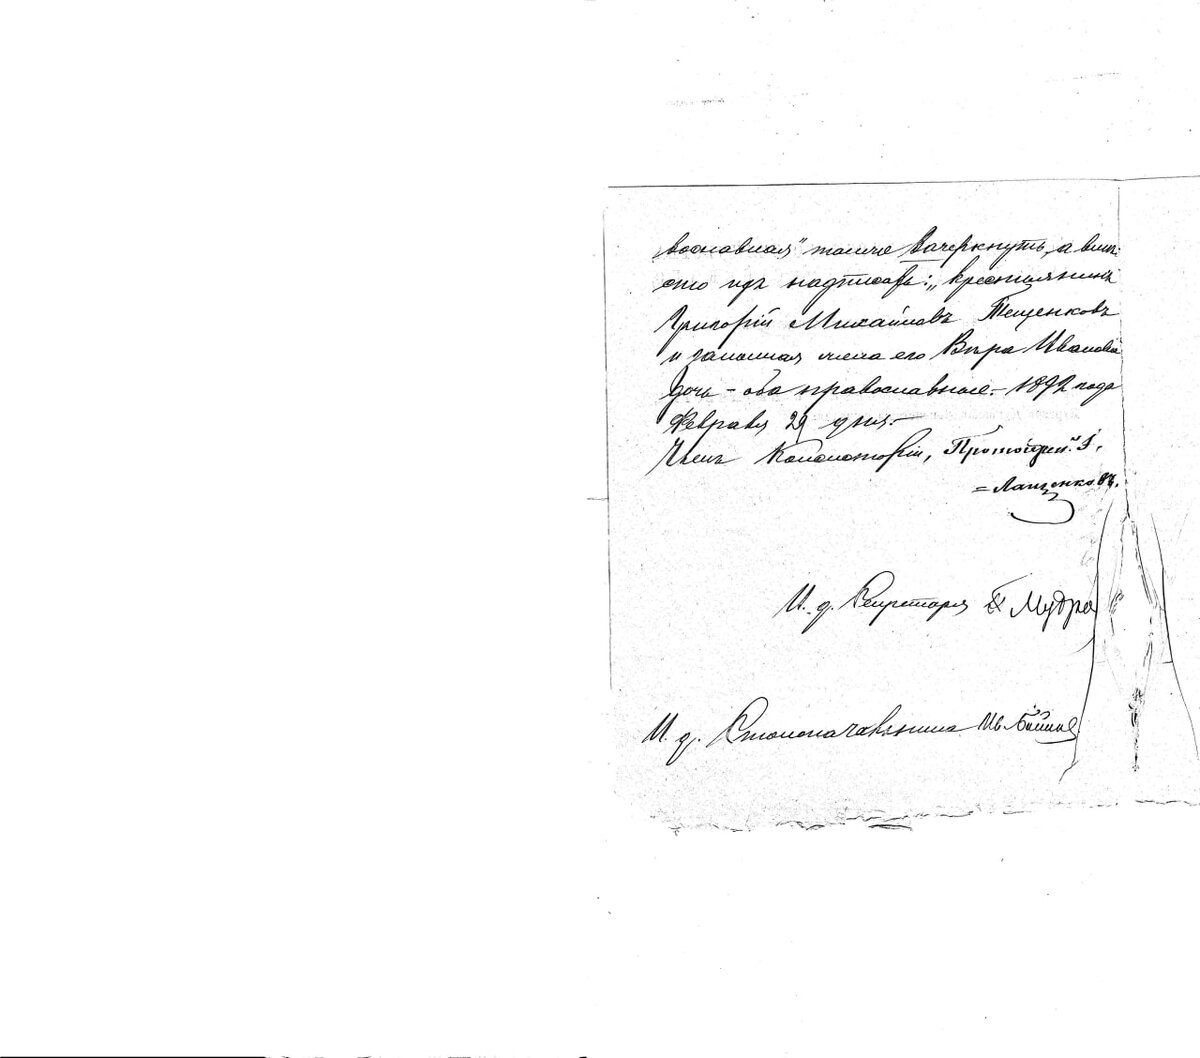 вославная" также Зачеркнуть, а вмѣ-
сто ихъ надписать: „крестьянинъ
Григорій Михайловъ Тещенковъ
и законная жена его Вѣра Иванова
дочь – оба православные. – 1892 года
Февраля 29 дня. –
Членъ Консисторіи, Протоіерей І.
= Лащенковъ.
И. д. Секретаря Мудра
И. д. Столоначальника Ив.